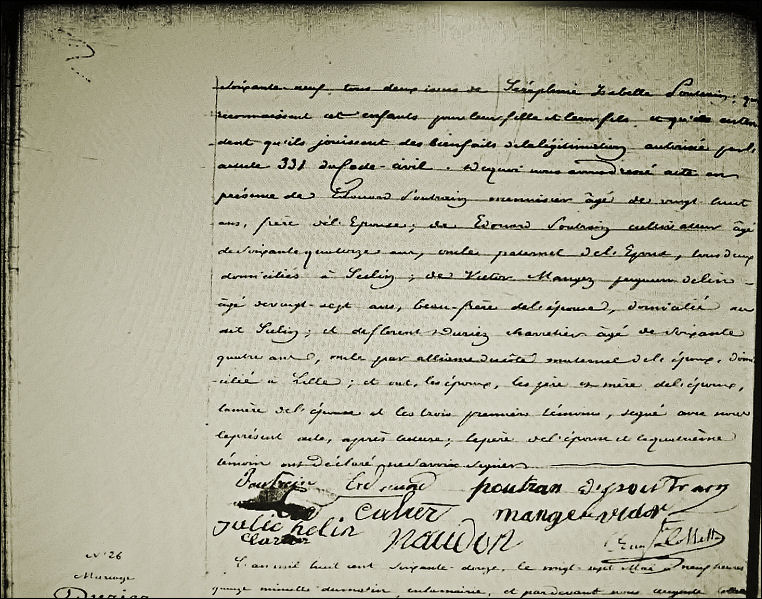 Soixante neuf, tous deux issus de Séraphine Isabelle Poutrain; qu'
reconnaissent cet enfants pour leur fille et leur fils et qu'ils enten
dent qu'ils jouissent des bienfaits de la légitimation autorisée par l'
article 331 du Code civil. De quoi nous avons dressé acte en
présence de Edouard Poutrain menuisier âgé de vingt huit
ans, frère de l'Epouse; de Edouard Poutrain cultivateur âgé
de soixante quatorze ans, oncle paternel de l'Epouse, tous deux
domiciliés à Seclin; de Victor Mangez peigneur de lin
âgé de vingt-sept ans, beau-frère de l'épouse, domicilié au
dit Seclin; et de florent Duriez charretier âgé de soixante
quatre ans, oncle par alliance du côté maternel de l'époux, domi
cilié à Lille; et ont, les époux, les père et mère de l'époux,
la mère de l'épouse et les trois premiers témoins, signé avec nous
le présent acte, après lecture; le père de l'épouse et le quatrième
témoin ont déclaré ne savoir signer
Poutrain poutran
mangez victor
julie helin
N° 26
Mariage
Duriez
L'an mil huit cent soixante-douze, le vingt-sept Mai à neuf heures
quinze minutes du matin, et pardevant nous